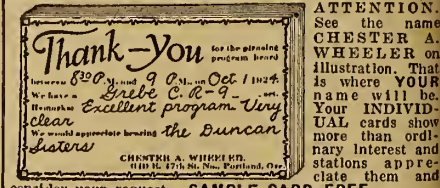 Thank-You for the pleasing
program heard
between 8:30 P.M. and 9 P.M., on Oct 1 1924
We have a Grebe C.R-9 set.
Remarks Excellent program. Very
clear
We would appreciate hearing the Duncan
Sisters
CHESTER A. WHEELER.
E. 17th St. No., Portland, Ore.
ATTENTION.
See the name
CHESTER A.
WHEELER on
illustration. That
is where YOUR
name will be.
Your INDIVID-
UAL cards show
more than ordi-
nary interest and
stations appre-
ciate them and
consider your request. SAMPLE CARD FREE